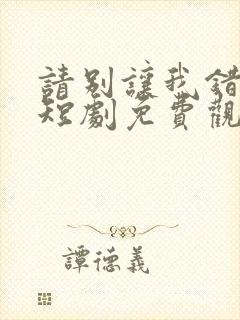 請別讓我錯
短劇免費觀
譚德義